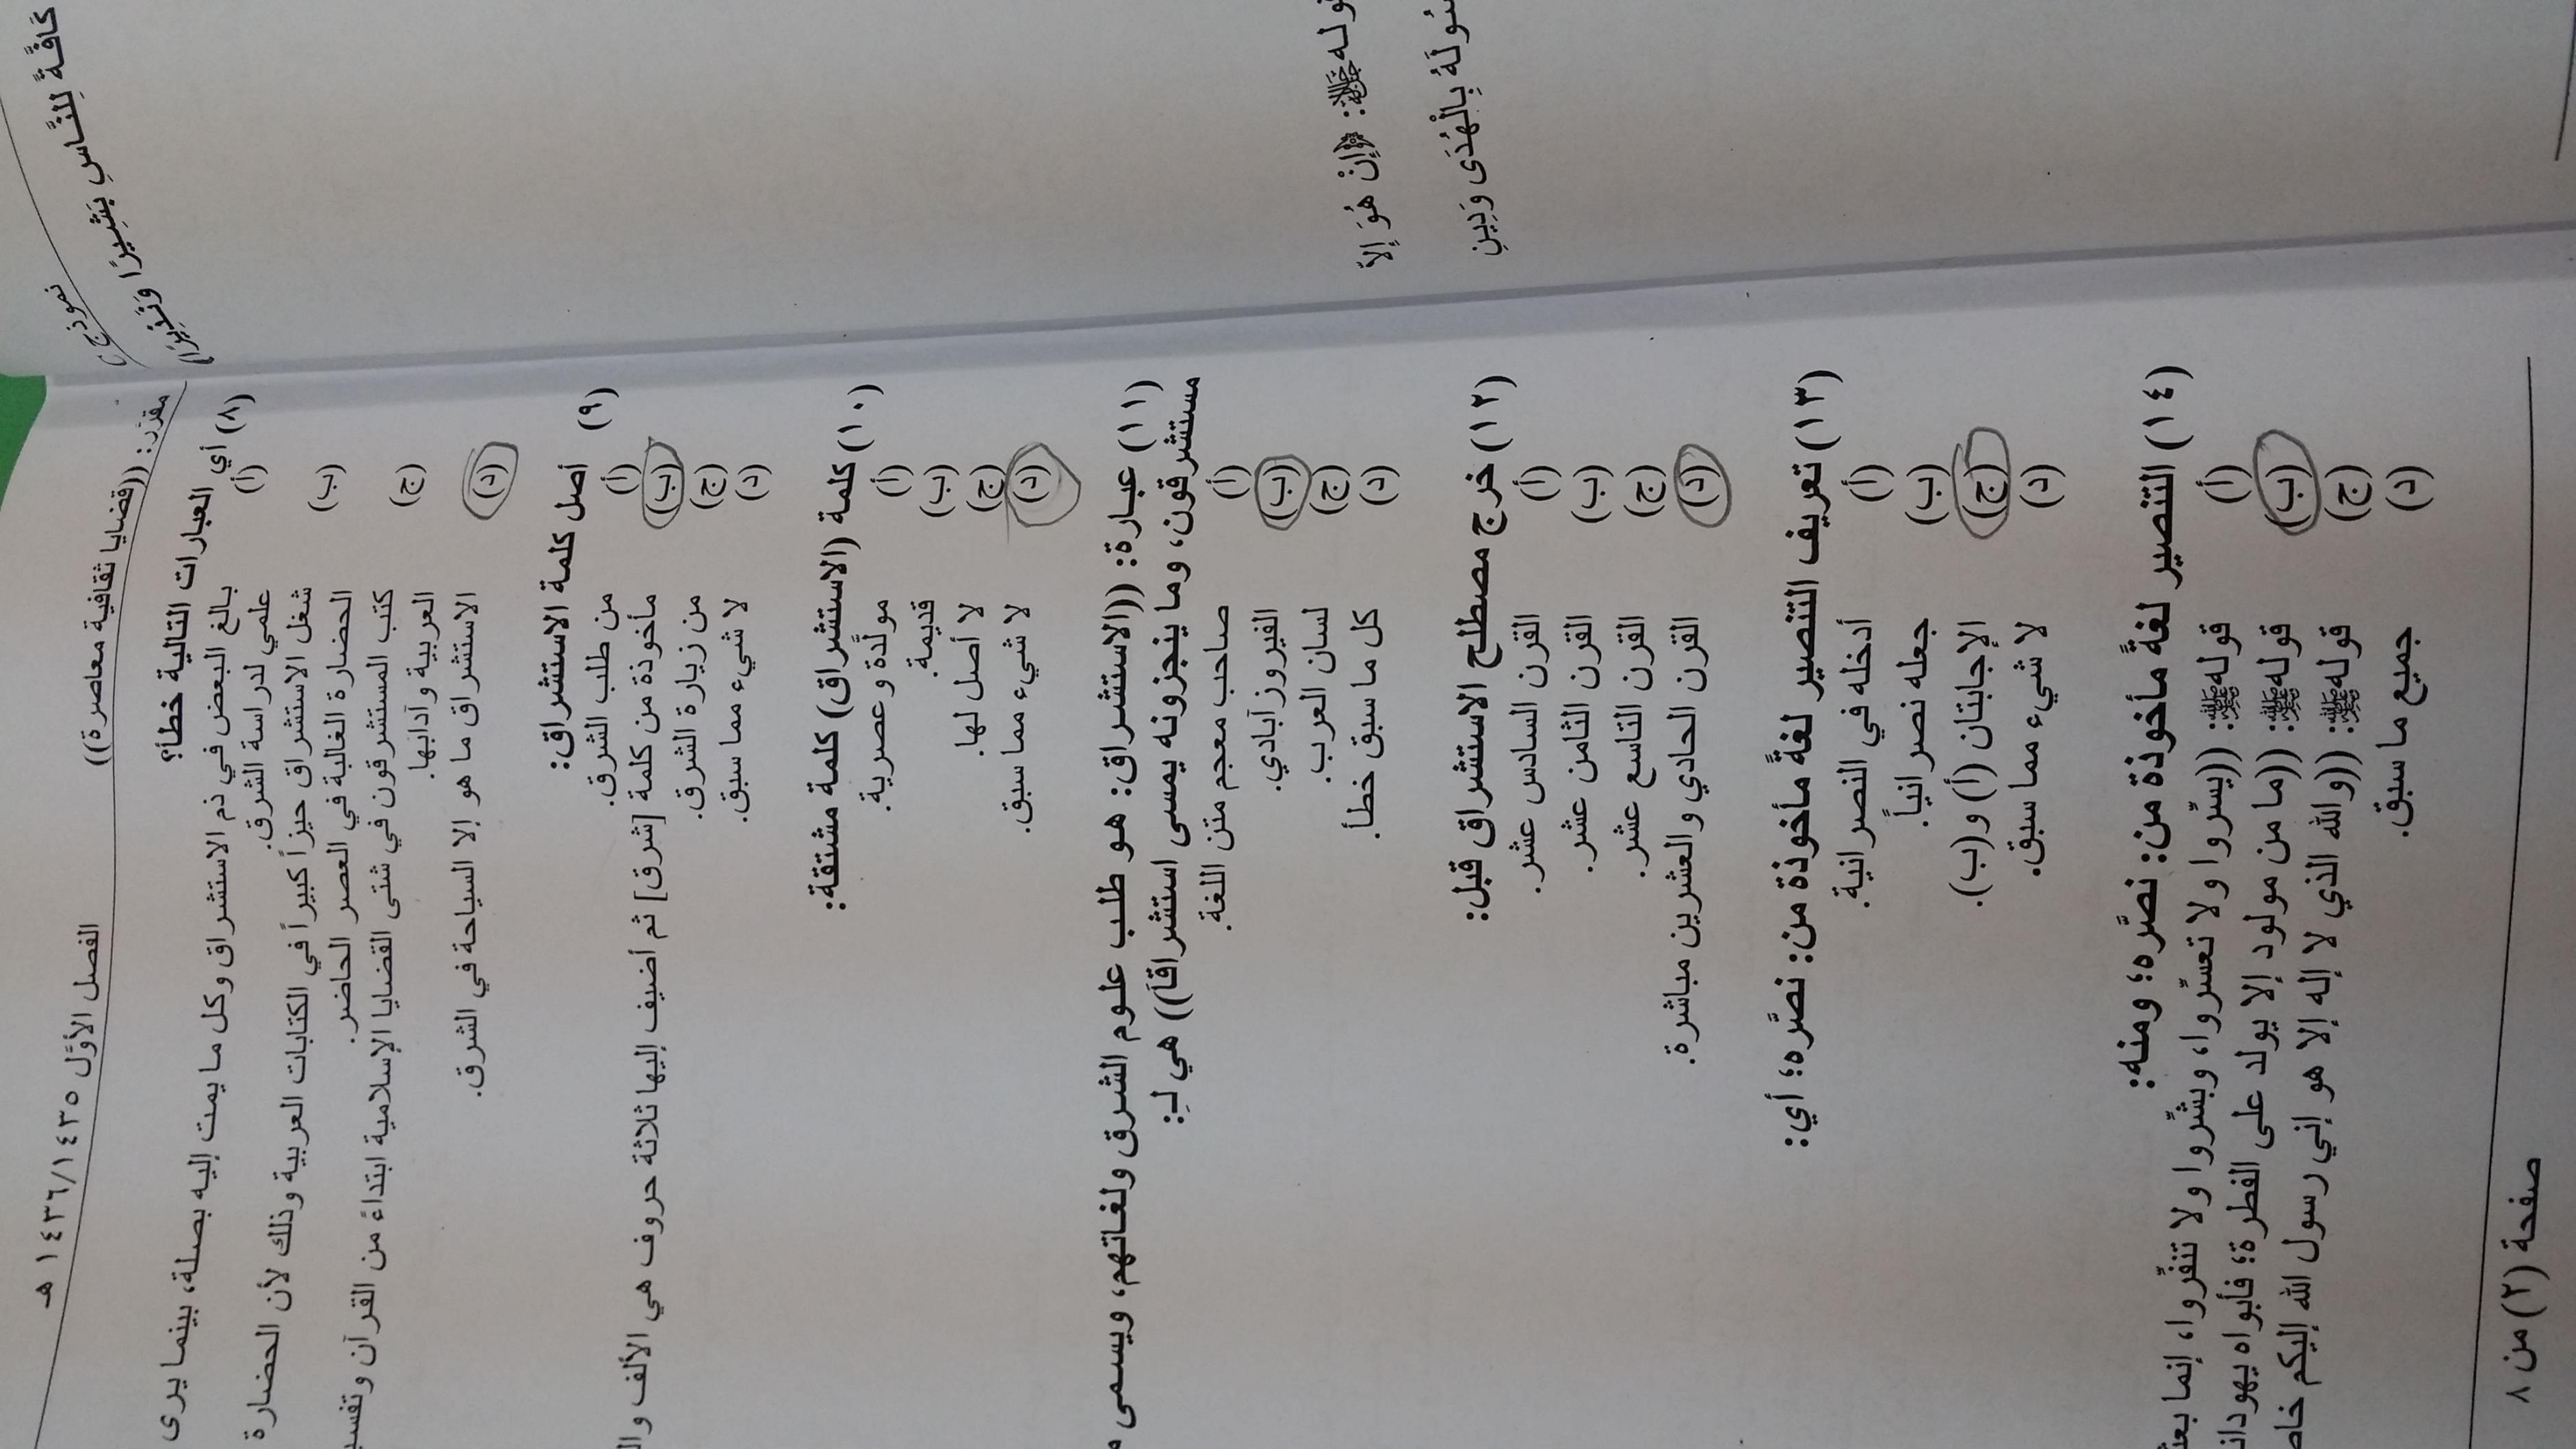 مقدّر: ((قضايا ثقافية معاصرة)) الفصل الأوَّل ١٤٣٦/١٤٣٥ هـ
نموذج
(٨) أي العبارات التالية خطأ؟
(أ) بالغ البعض في ذم الاستشراق وكل ما يمت إليه بصلة، بينما يرى
علمي لدراسة الشرق.
(ب) شغل الاستشراق حيزاً كبيراً في الكتابات العربية وذلك لأن الحضارة
الحضارة الغالبة في العصر الحاضر.
(ج) كتب المستشرقون في شتى القضايا الإسلامية ابتداءً من القرآن وتفسي
العربية وآدابها.
(د) الاستشراق ما هو إلا السياحة في الشرق.
(٩) أصل كلمة الاستشراق:
(أ) من طلب الشرق.
(ب) مأخوذة من كلمة [شرق] ثم أضيف إليها ثلاثة حروف هي الألف وال
(ج) من زيارة الشرق.
(د) لا شيء مما سبق.
(١٠) كلمة (الاستشراق) كلمة مشتقة:
(أ) مولَّدة وعصرية.
(ب) قديمة.
(ج) لا أصل لها.
(د) لا شيء مما سبق.
(١١) عبارة: ((الاستشراق: هو طلب علوم الشرق ولغاتهم، ويسمى
مستشرقون، وما ينجزونه يمسى استشراقاً)) هي لـِ:
(أ) صاحب معجم متن اللغة.
(ب) الفيروزآبادي.
(ج) لسان العرب.
(د) كل ما سبق خطأ.
(١٢) خرج مصطلح الاستشراق قبل:
(أ) القرن السادس عشر.
(ب) القرن الثامن عشر.
(ج) القرن التاسع عشر.
(د) القرن الحادي والعشرين مباشرة.
(١٣) تعريف التنصير لغةً مأخوذة من: نصَّره؛ أي:
(أ) أدخله في النصرانية.
(ب) جعله نصرانياً.
(ج) الإجابتان (أ) و(ب).
(د) لا شيء مما سبق.
(١٤) التنصير لغةً مأخوذة من: نصَّره؛ ومنه:
(أ) قوله ﷺ: ((يسِّروا ولا تعسِّروا، وبشِّروا ولا تنفِّروا، إنما بعث
(ب) قوله ﷺ: ((ما من مولود إلا يولد على الفطرة؛ فأبواه يهودان
(ج) قوله ﷺ: ((والله الذي لا إله إلا هو إني رسول الله إليكم خاص
(د) جميع ما سبق.
صفحة (٢) من ٨
كَافَّةً لِلنَّاسِ بَشِيرًا وَنَذِيرًا
إِنْ هُوَ إِلاَّ
بِالْهُدَى وَدِينِ